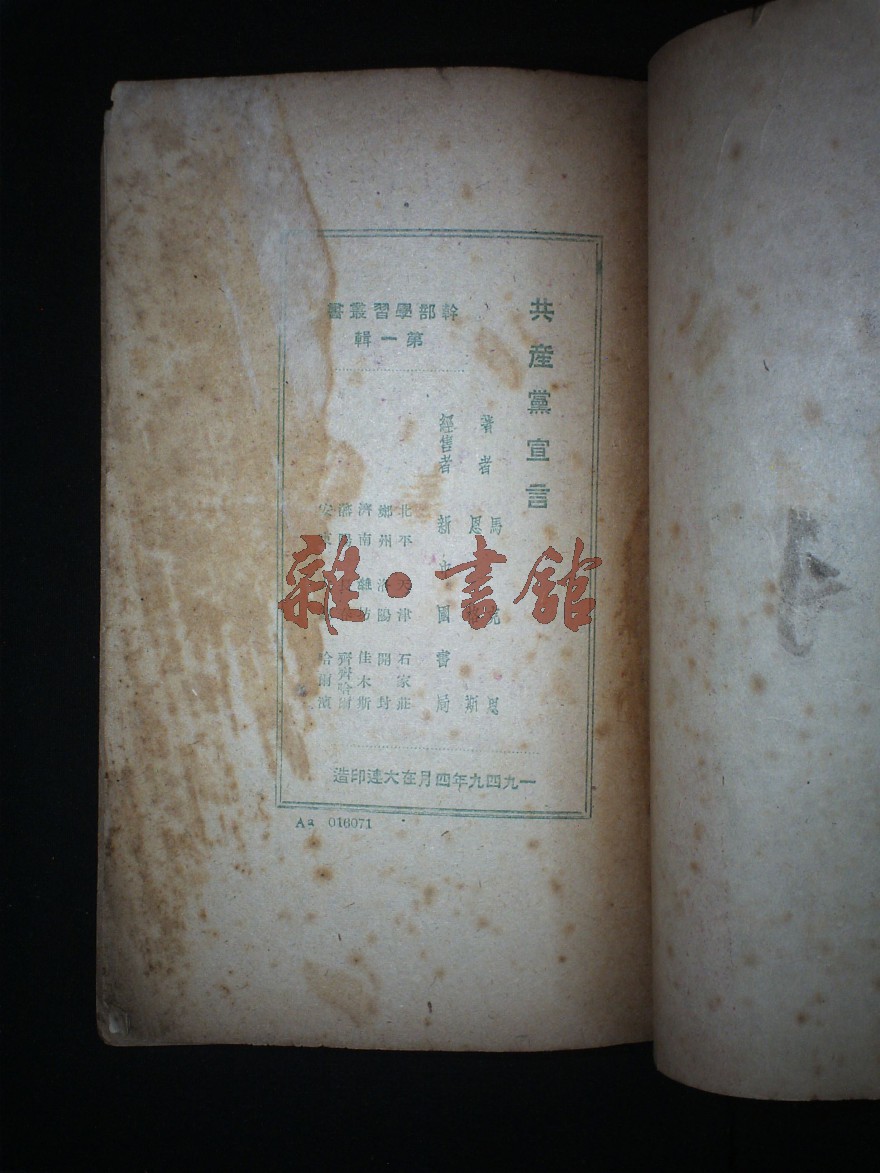 共產黨宣言
幹部學習叢書
第一輯
著者
馬克思
恩格斯
經售者
新中國書局
北平 天津 石家莊
鄭州 洛陽 開封
濟南 濰坊 佳木斯
瀋陽 齊齊哈爾
安東 哈爾濱
一九四九年四月在大連印造
Aa 016071
雜·書館